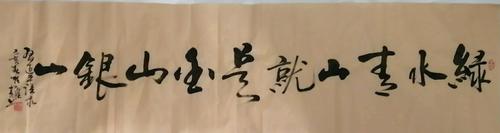 綠水青山就是金山銀山